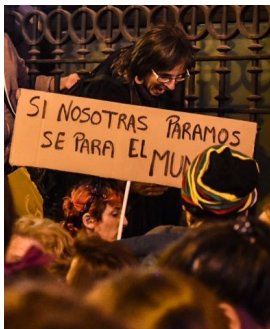 SI NOSOTRAS PARAMOS
SE PARA EL